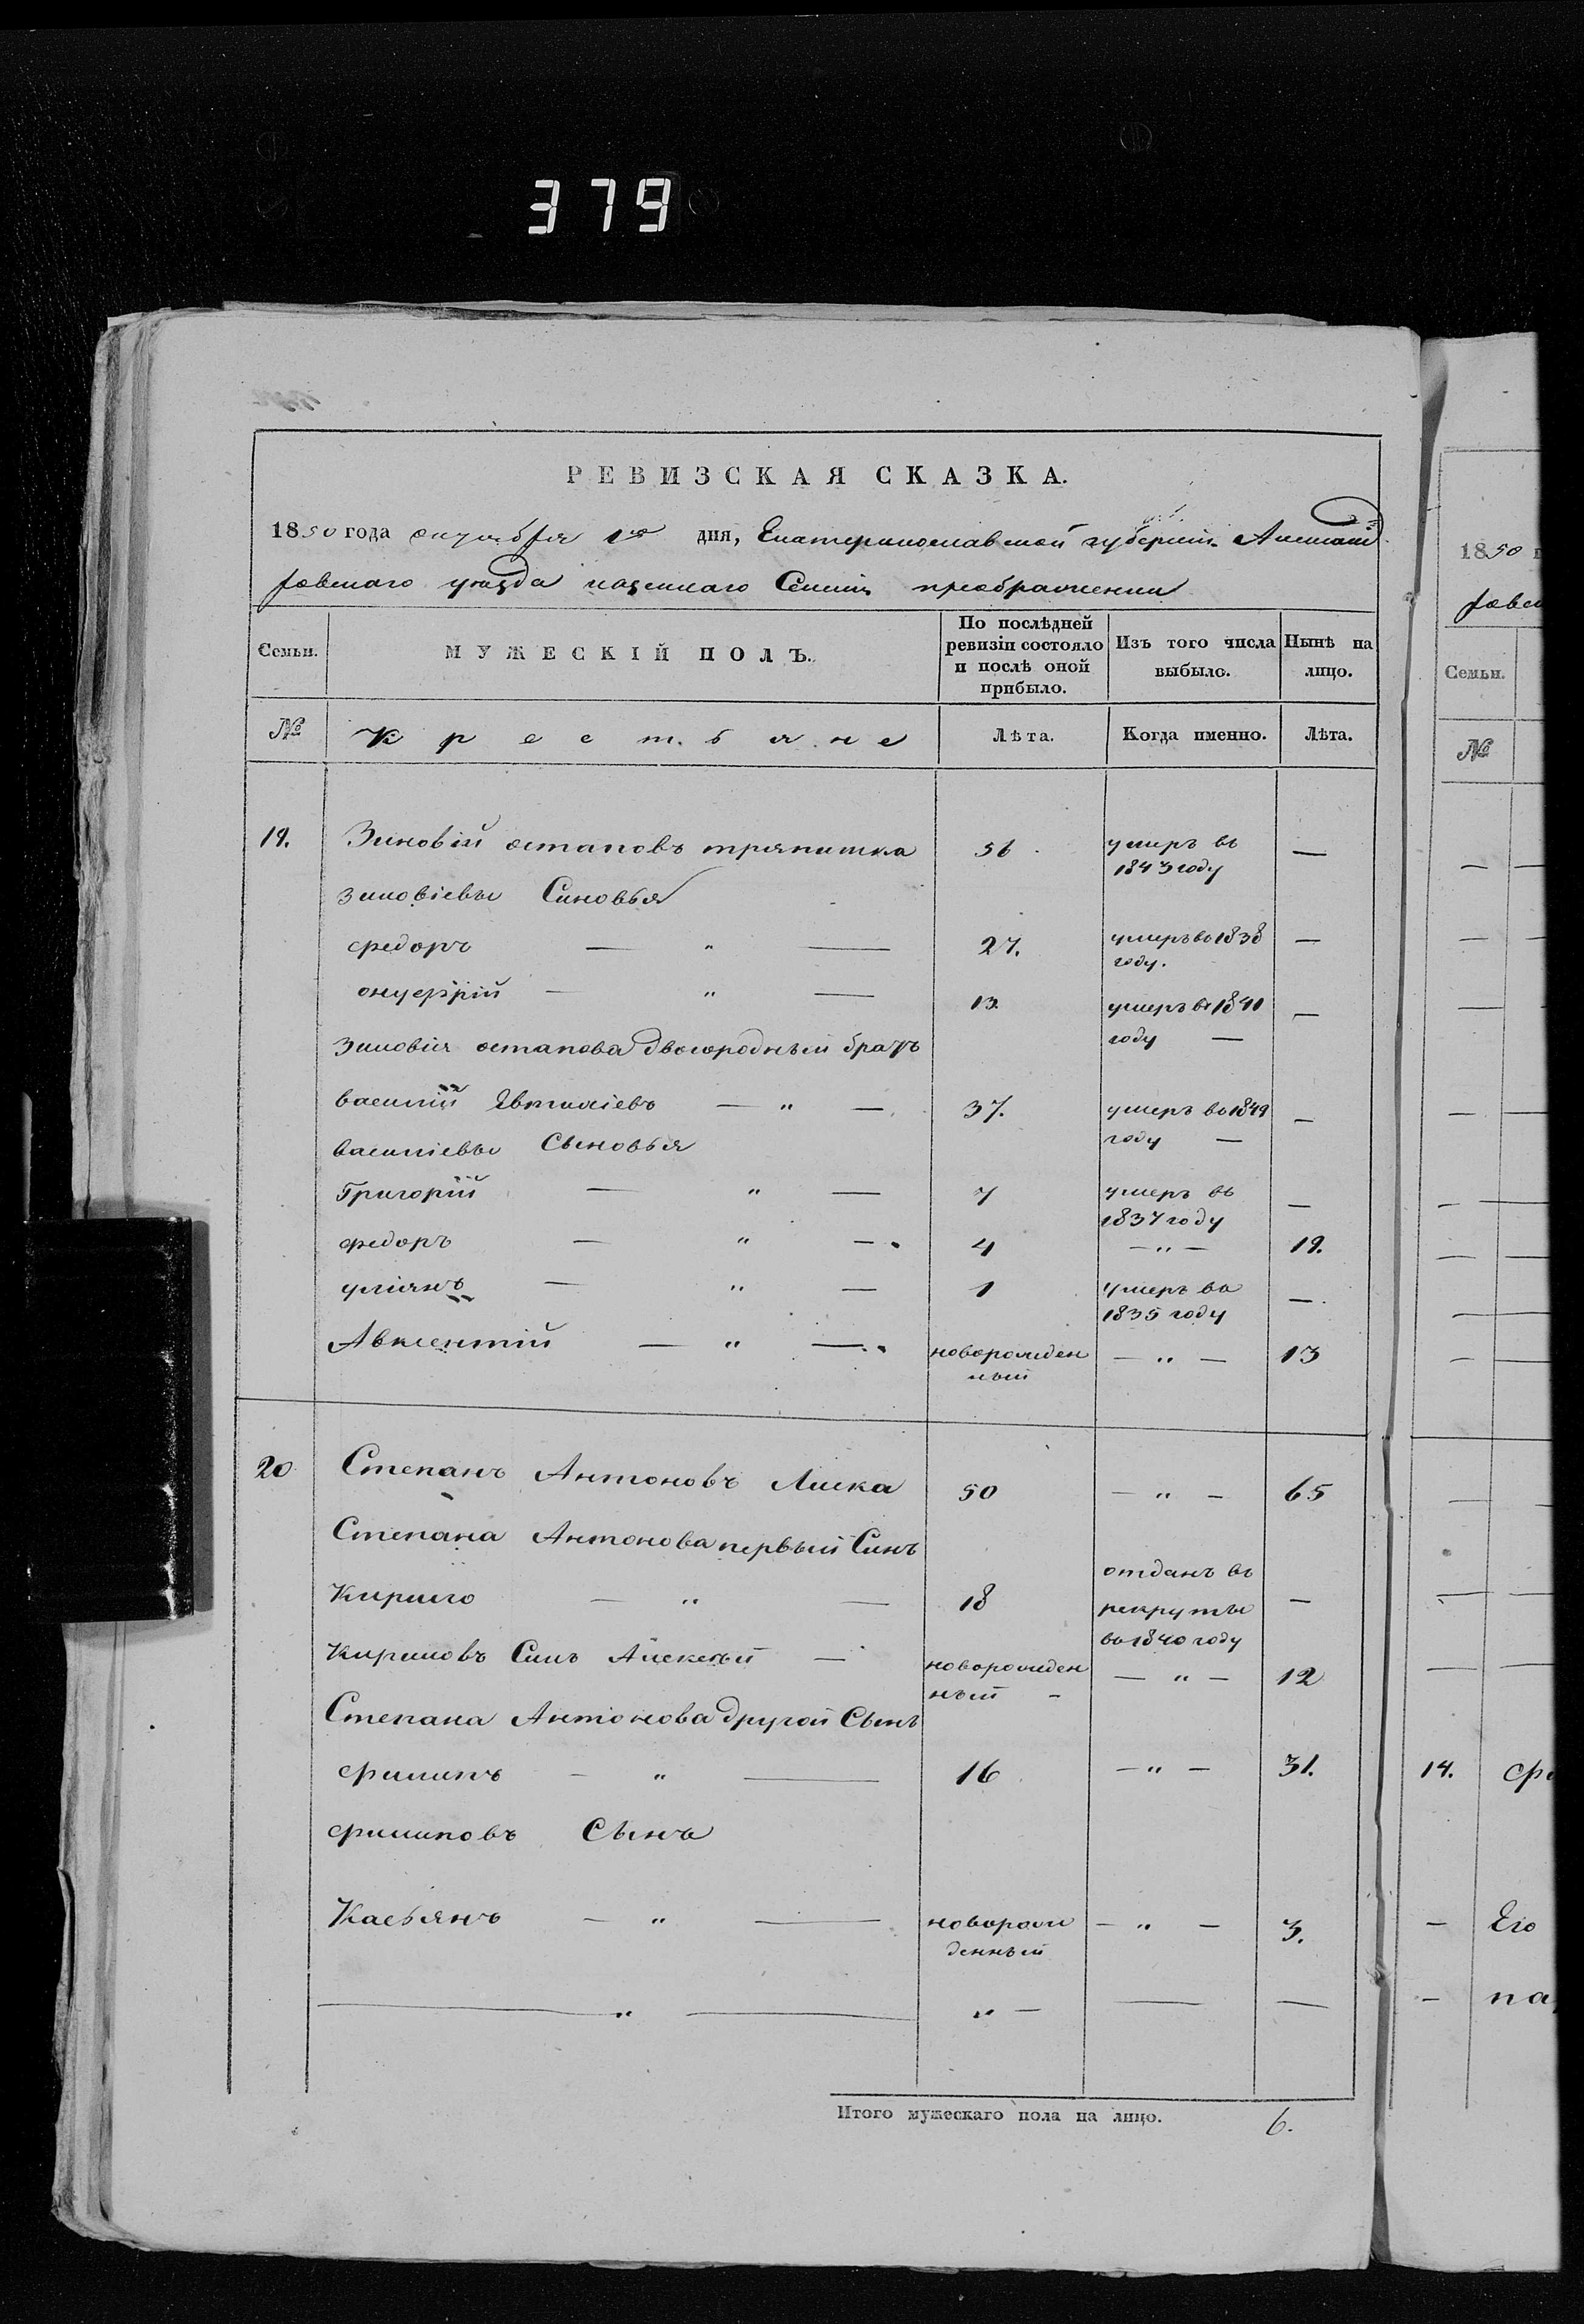 379
РЕВИЗСКАЯ СКАЗКА.
1850 года октября 1го дня, Екатеринославской губерніи Александ
ровскаго уѣзда казеннаго Селенія преображенки
Семьи.
МУЖЕСКІЙ ПОЛЪ.
По послѣдней ревизіи состояло и послѣ оной прибыло.
Изъ того числа выбыло.
Нынѣ на лицо.
№ Крестьяне Лѣта. Когда именно. Лѣта.
19. Зиновій остаповъ тряпишка 56 умеръ въ 1843 году —
зиновіевы Синовья
федоръ — " — 27. умеръ во 1838 году. —
онуфрій — " — 13 умеръ въ 1841 году —
Зиновія остапова двоюродный братъ
василій — " — 37. умеръ во 1849 году —
василіевы Сыновья
Григорій — " — 7 умеръ въ 1837 году —
федоръ — " — 4 — " — 19.
уліянъ — " — 1 умеръ во 1835 году —
Авксентій — " — новорожденный — " — 13
20 Степанъ Антоновъ Лиска 50 — " — 65
Степана Антонова первый Синъ
Кирило — " — 18 отданъ въ рекруты во 1840 году —
Кириловъ Синъ Алексѣй — новорожденный — " — 12
Степана Антонова другой Сынъ
филипъ — " — 16 — " — 31.
филиповъ Сынъ
Касьянъ — " — новорожденный — " — 3.
— " — " — — —
Итого мужескаго пола на лицо. 6.
1850
Семьи.
№
14.
Его